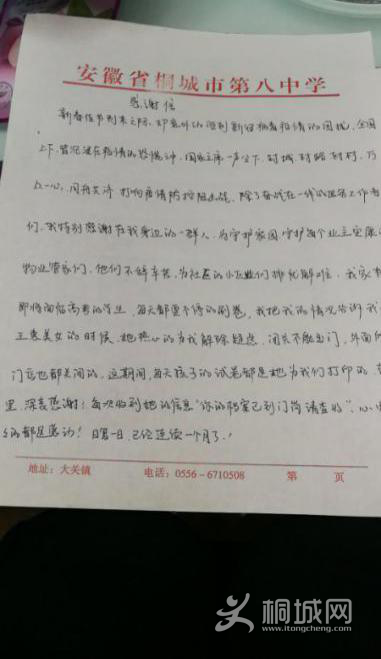 安徽省桐城市第八中学
感谢信
新春佳节到来之际，却意外的受到新冠病毒疫情的困扰，全国
上下，皆沉浸在疫情的恐慌中，国家主席一声令下，封城封路封村，万
众一心，同舟共济，打响疫情防控阻击战，除了奋战在一线的医务工作者
们，我特别感谢在我身边的一群人，为守护家园，守护每个业主安康的
物业管家们，他们不辞辛苦，为社区的小区业们排忧解难，我家有
即将面临高考的学生，每天都要不停的刷卷，我把我的情况告诉我
工 美女的时候，她热心的为我解除疑惑，闭关不能出门，外面的
门店也都关闭的，这期间，每天孩子的试卷都是她为我们打印的，在
里，深表感谢！每次收到她的信息“你的档案已到门岗请查收”，心
的都是感动！日复一日，已经连续一个月了！
地址：大关镇 电话：0556-6710508 第 页
桐城网
www.itongcheng.com